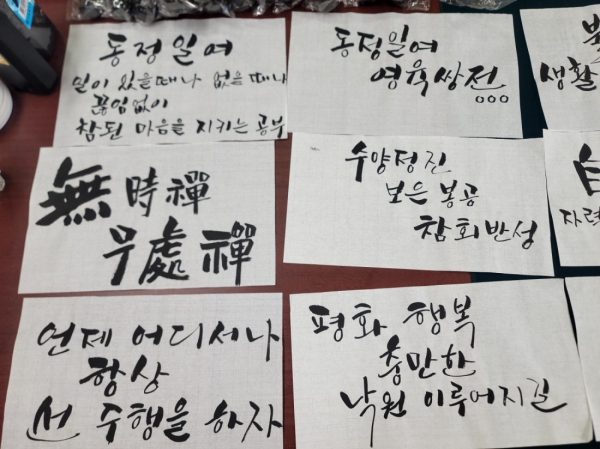 동정일여
일이 있을때나 없을때나
끊임없이
참된 마음을 지키는 공부
동정일여
영육쌍전
생활
無時禪
무處禪
수양정진
보은봉공
참회반성
자력
언제 어디서나
항상
선 수행을 하자
평화 행복
충만한
낙원 이루어지길